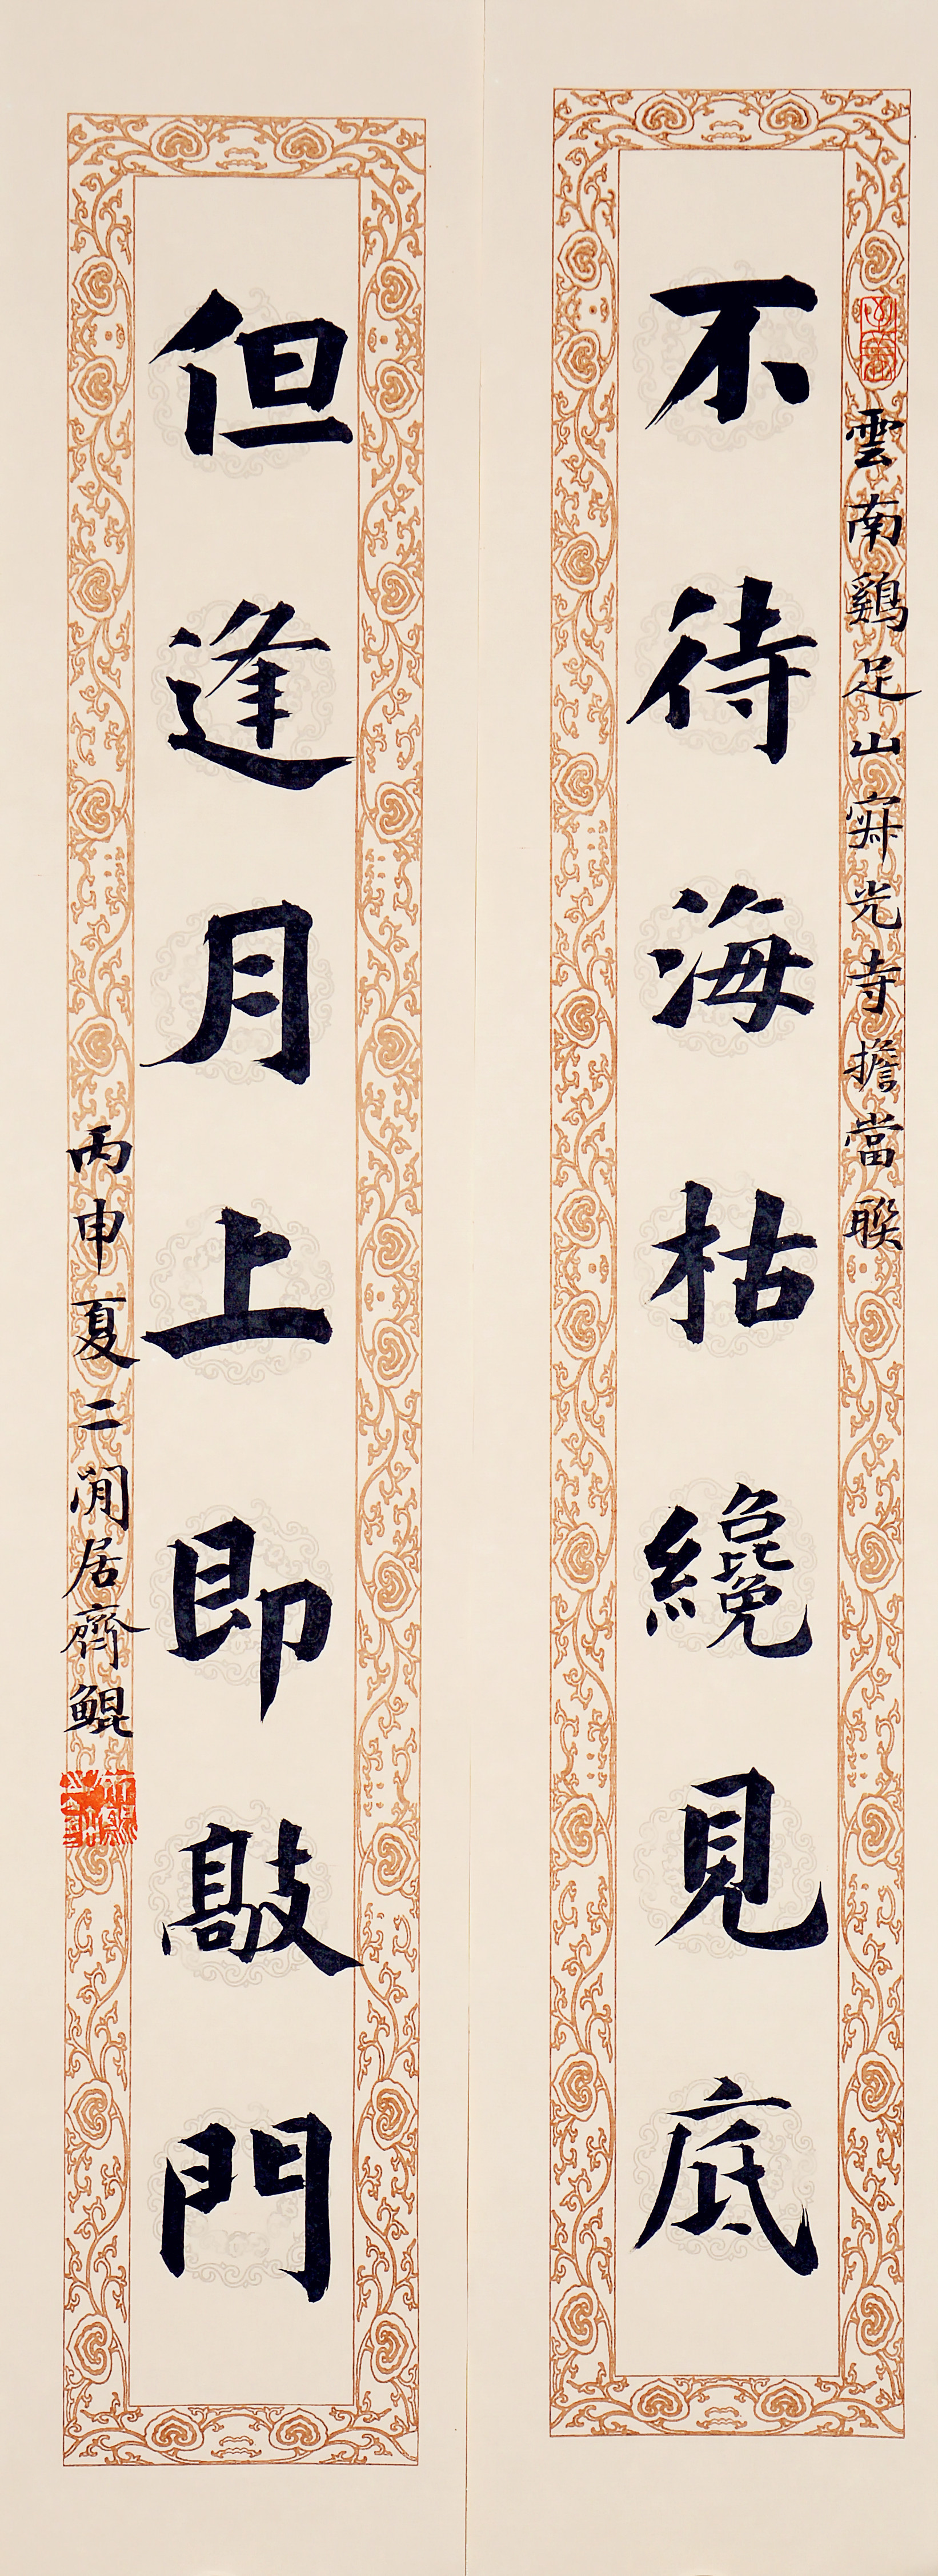 雲南鷄足山寂光寺擔當聯
不待海枯纔見底
但逢月上即敲門
丙申夏二閒居齋鯤